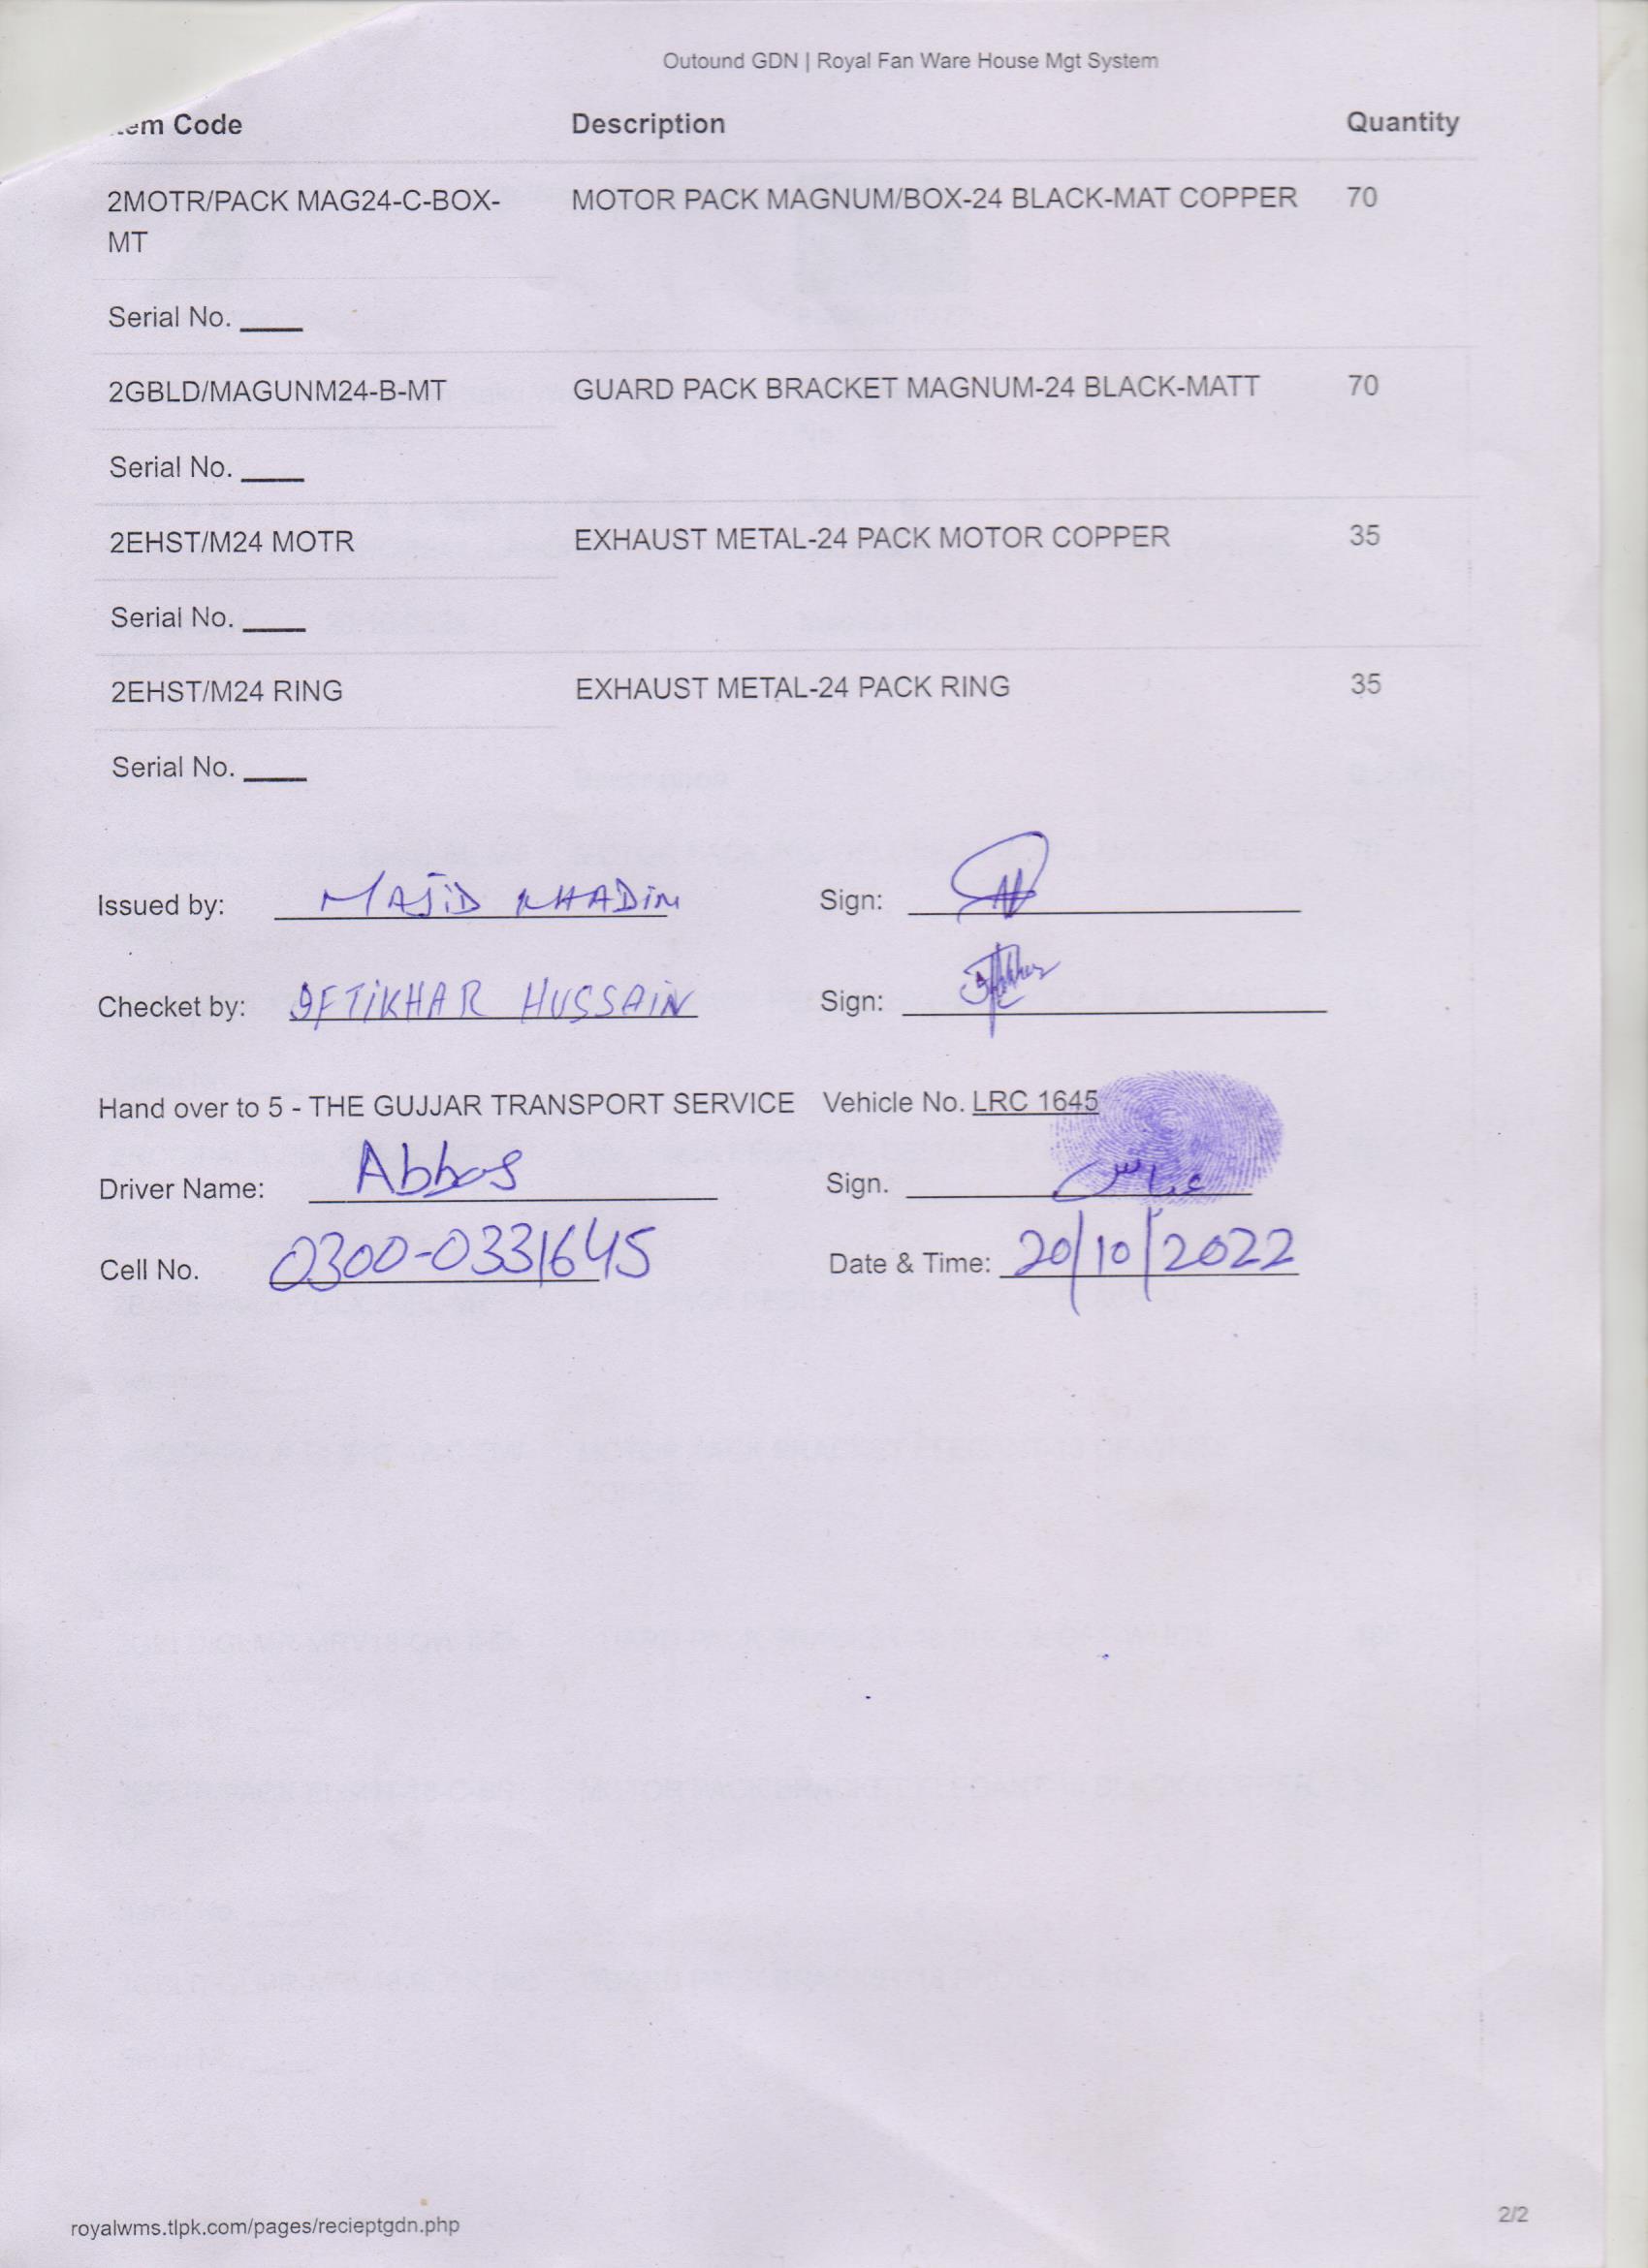 Outound GDN | Royal Fan Ware House Mgt System
Item Code Description Quantity
2MOTR/PACK MAG24-C-BOX- MOTOR PACK MAGNUM/BOX-24 BLACK-MAT COPPER 70
MT
Serial No. ____
2GBLD/MAGUNM24-B-MT GUARD PACK BRACKET MAGNUM-24 BLACK-MATT 70
Serial No. ____
2EHST/M24 MOTR EXHAUST METAL-24 PACK MOTOR COPPER 35
Serial No. ____
2EHST/M24 RING EXHAUST METAL-24 PACK RING 35
Serial No. ____
Issued by: MAJID KHADIM Sign:
Checket by: IFTIKHAR HUSSAIN Sign:
Hand over to 5 - THE GUJJAR TRANSPORT SERVICE Vehicle No. LRC 1645
Driver Name: Abbas Sign. عباس
Cell No. 0300-0331645 Date & Time: 20/10/2022
royalwms.tlpk.com/pages/recieptgdn.php 2/2